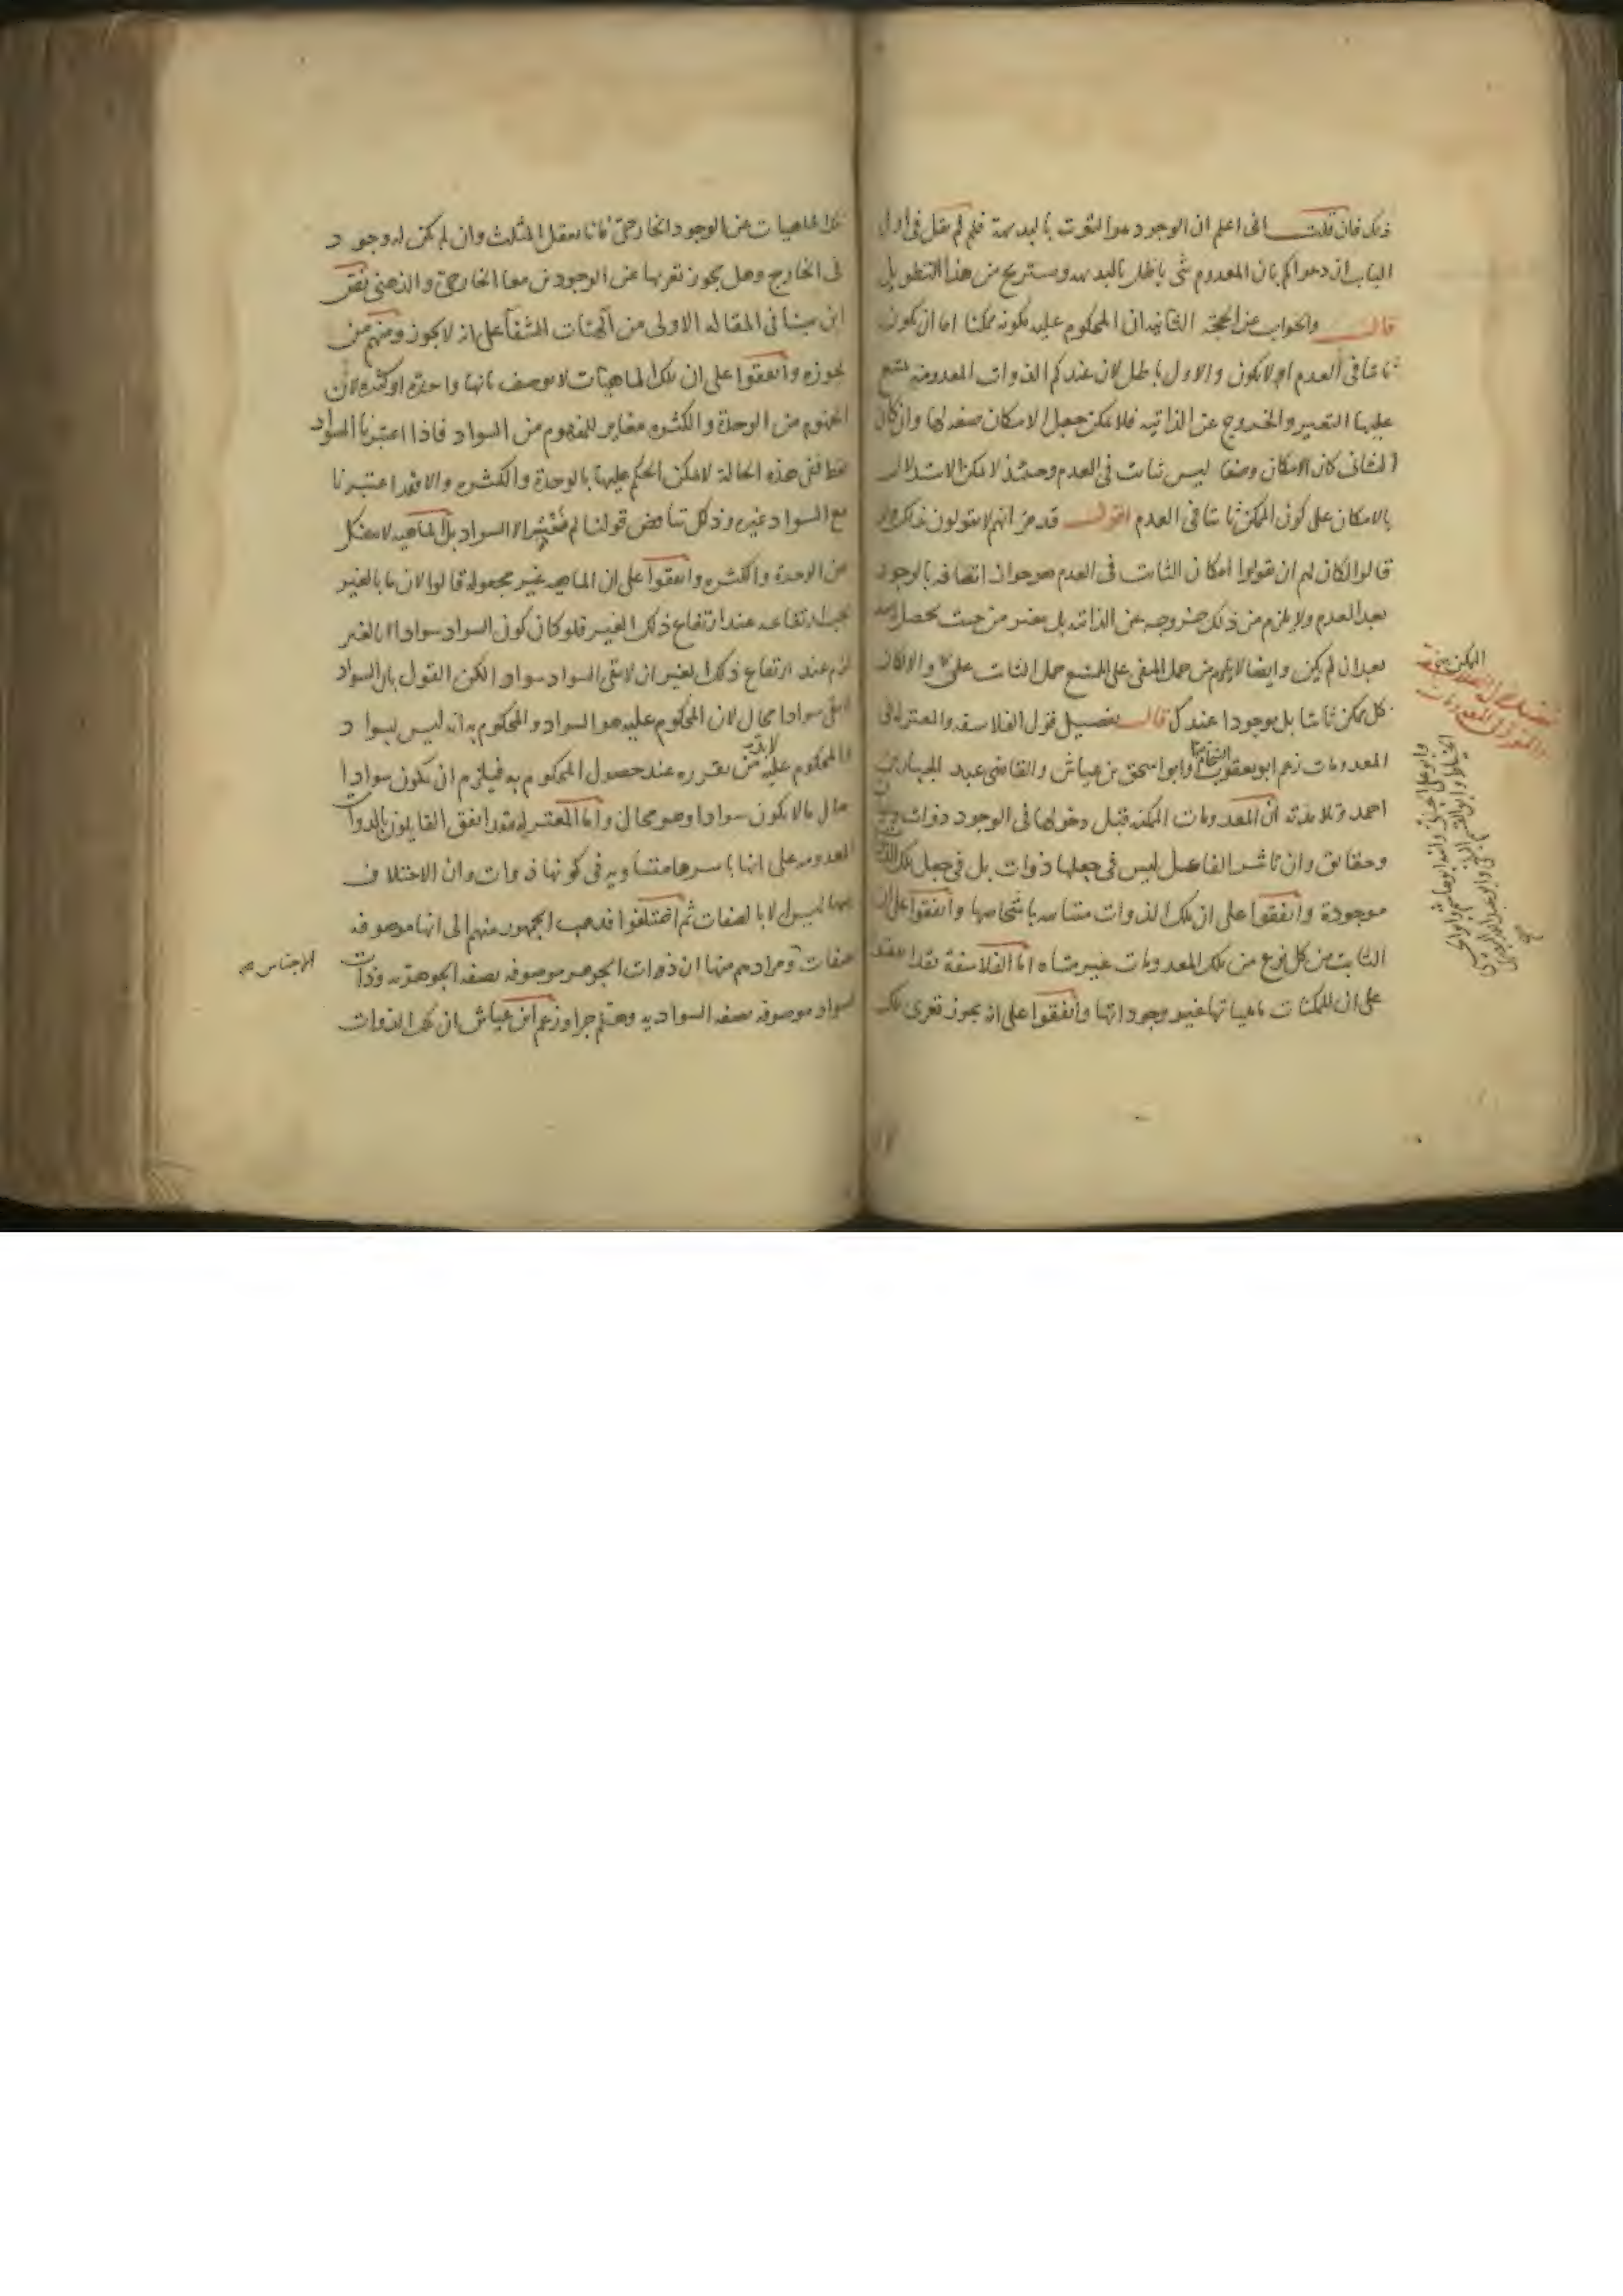 ذلك فان قلت انى اعلم ان الوجود هو الثبوت بالبديهة فلم لم يقل فى اول
الباب ان دعواكم بان المعدوم شى باطل بالبديهه ويستريح من هذا التطويل
قال والجواب عن الحجة الثانيه ان المحكوم عليه بكونه ممكنا اما ان يكون
ثابتا فى العدم او لا يكون والاول باطل لان عندكم الذوات المعدومة يمتنع
عليها التغيير والخروج عن الذاتيه فلا يمكن جعل الامكان صفه لها وان كان
الثانى كان الامكان وصفا ليس ثابت فى العدم وحينئذ لا يمكن الاستدلال
بالامكان على كون الممكن ثابتا فى العدم اقول قد مر انهم لا يقولون بذلك ولو
قالوا لكان لهم ان يقولوا امكان الثابت فى العدم هو جواز اتصافه بالوجود
بعد العدم ولا يلزم من ذلك خروجه عن الذاتيه بل يتغير من حيث يحصل له
بعد ان لم يكن وايضا لا يلزم من حمل المنفى على الممتنع حمل الثابت على والا لكان
كل ممكن ثابتا بل موجودا عندكم قال تفصيل قول الفلاسفه والمعتزله فى
المعدومات زعم ابو يعقوب الشحام وابو اسحق بن عياش والقاضى عبد الجبار بن
احمد وتلامذته ان المعدومات الممكنه قبل دخولها فى الوجود ذوات
وحقايق وان تاثير الفاعل ليس فى جعلها ذوات بل فى جعل تلك الذوات
موجودة واتفقوا على ان تلك الذوات متباينه باشخاصها واتفقوا على ان
الثابت من كل نوع من تلك المعدومات غير متناه اما الفلاسفة فقد اتفقوا
على ان للممكنات ماهياتها غير وجوداتها واتفقوا على انه يجوز تعرى تلك
تفصيل قول الفلاسفة
والمعتزلة فى المعدومات
وابو على الجبائى وابنه ابو هاشم وابو الحسين
الخياط وابو القسم البلخى وابو عبد الله البصرى
تلك الماهيات عن الوجود الخارجى فانا نعقل المثلث وان لم يكن له وجود
فى الخارج وهل يجوز تعريها عن الوجودين معا الخارجى والذهنى نص
ابن سينا فى المقاله الاولى من الهيات الشفا على انه لا يجوز ومنهم من
يجوزه واتفقوا على ان تلك الماهيات لا توصف بانها واحدة او كثيره لان
المفهوم من الوحدة والكثره مغاير للمفهوم من السواد فاذا اعتبرنا السواد
فقط ففى هذه الحالة لا يمكن الحكم عليها بالوحدة والكثره والا فقد اعتبرنا
مع السواد غيره وذلك يناقض قولنا لم نعتبر الا السواد بل الماهيه لا تنفك
عن الوحدة والكثره واتفقوا على ان الماهيه غير مجعوله قالوا لان ما بالغير
يجب ارتفاعه عند ارتفاع ذلك الغير فلو كان كون السواد سوادا بالغير
لزم عند ارتفاع ذلك الغير ان لا يبقى السواد سوادا لكن القول بان السواد
لا يبقى سوادا محال لان المحكوم عليه هو السواد والمحكوم به انه ليس بسواد
والمحكوم عليه لابد من تقرره عند حصول المحكوم به فيلزم ان يكون سوادا
حال ما لا يكون سوادا وهو محال واما المعتزله فقد اتفق القايلون بالذوات
المعدومه على انها باسرها متساويه فى كونها ذوات وان الاختلاف
بينها ليس الا بالصفات ثم اختلفوا فذهب الجمهور منهم الى انها موصوفه
بصفات ومرادهم منها ان ذوات الجوهر موصوفه بصفه الجوهريه وذات
السواد موصوفه بصفه السواديه وهلم جرا وزعم ابن عياش ان تلك الذوات
الاجناس صح